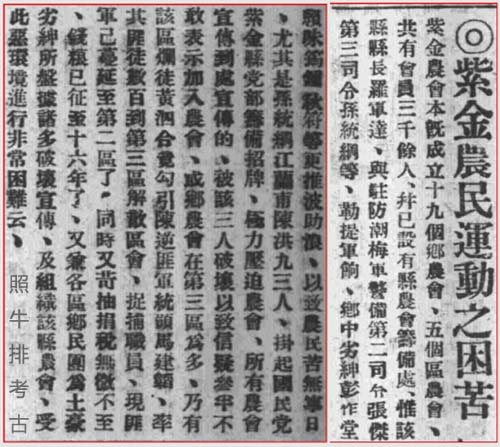 ◎紫金農民運動之困苦
紫金農會本旣成立十九個鄉農會、五個區農會、
共有會員三千餘人、幷已設有縣農會籌備處、惟該
縣縣長羅軍達、與駐防潮梅軍警備第二司令張傑
第三司令孫統綱等、勒提軍餉、鄉中劣紳彭炸堂
賴咏鈞 秋符等更推波助浪、以致農民苦無寧日
、尤其是孫統綱江蘭甫陳洪九三人、掛起國民党
紫金縣党部籌備招牌、極力壓迫農會、所有農會
宣傳到處宣傳的、被該三人破壞以致信疑參半不
敢表示加入農會、或鄉農會在第三區爲多、乃有
該區爛徒黃泗合竟勾引陳逆匪軍統頭馬建 、率
其匪徒數百到第三區解散區會、捉捕職員、現匪
軍已蔓延至第二區了、同時又苛抽捐稅無微不至
、錢粮已征至十六年了、又兼各區鄉民團爲土豪
劣紳所盤據諸多破壞宣傳、及組織該縣農會、受
此惡環境進行非常困難云、
照牛排考古